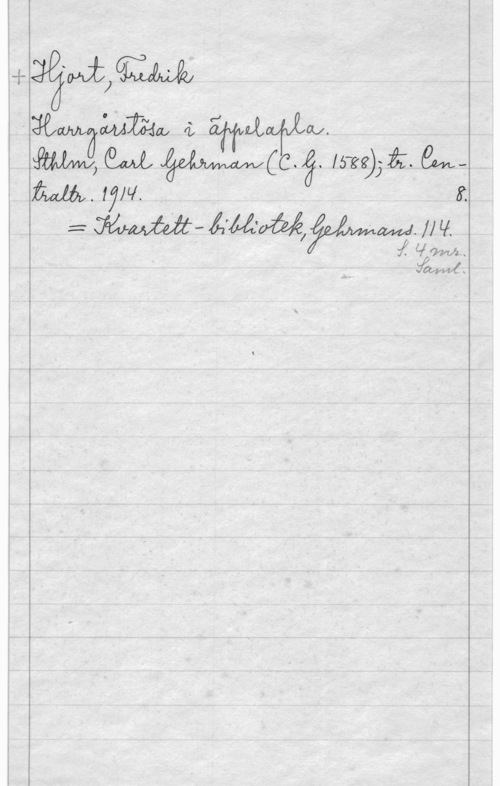 + Hjort, Fredrik
Harrgårstösa i äppelapla.
Sthlm, Carl Gehrman (C. G. 1588); tr. Cen-
traltr. 1914. 8.
= Kvartett-bibliotek, Gehrmans. 114.
f. 4 mr.
Saml.